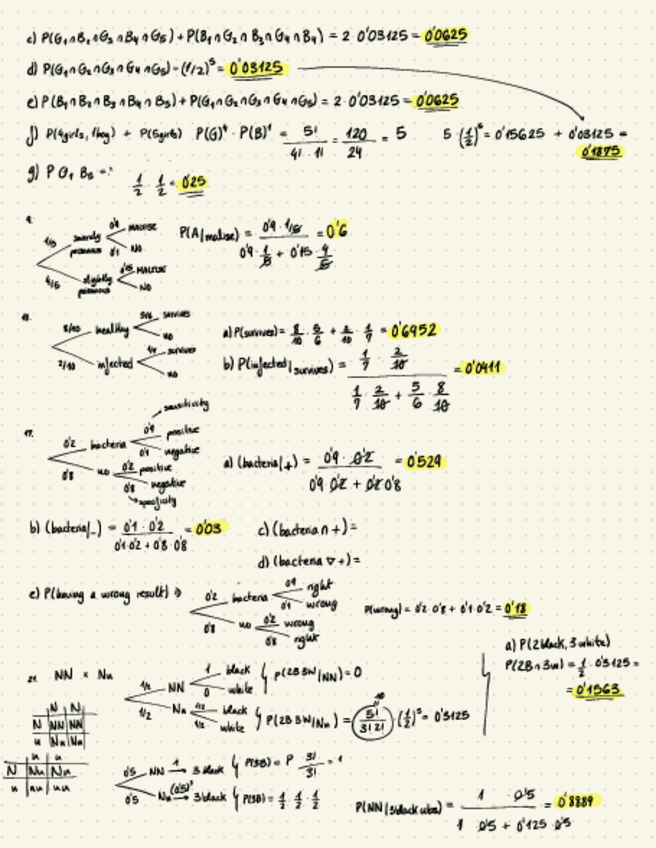 c) P(G₁∩B₂∩G₃∩B₄∩G₅) + P(B₁∩G₂∩B₃∩G₄∩B₄) = 2·0'03125 = 0'0625
d) P(G₁∩G₂∩G₃∩G₄∩G₅) = (1/2)⁵ = 0'03125
e) P(B₁∩B₂∩B₃∩B₄∩B₅) + P(G₁∩G₂∩G₃∩G₄∩G₅) = 2·0'03125 = 0'0625
f) P(4girls, 1boy) + P(5girls) P(G)⁴·P(B)¹ = 5!/4!·1! = 120/24 = 5 5·(1/2)⁵ = 0'15625 + 0'03125 = 0'1875
g) P G₁ B₂ = 1/2·1/2 = 0'25
9.
1/5 severely poisonous 0'9 MALAISE
0'1 NO
4/5 slightly poisonous 0'15 MALAISE
NO
P(A/malaise) = 0'9·1/5 / 0'9·1/5 + 0'15·4/5 = 0'6
8/10 healthy 5/6 survives
no
2/10 infected 1/7 survives
no
a) P(survives) = 8/10·5/6 + 2/10·1/7 = 0'6952
b) P(infected/survives) = 1/7·2/10 / 1/7·2/10 + 5/6·8/10 = 0'0411
17.
sensitivity
0'2 bacteria 0'9 positive
0'1 negative
0'8 no 0'2 positive
0'8 negative
specificity
a) (bacteria/+) = 0'9·0'2 / 0'9·0'2 + 0'2·0'8 = 0'529
b) (bacteria/-) = 0'1·0'2 / 0'1·0'2 + 0'8·0'8 = 0'03
c) (bacteria ∩ +) =
d) (bacteria ∇ +) =
e) P(having a wrong result) ⇒
0'2 bacteria 0'9 right
0'1 wrong
0'8 no 0'2 wrong
0'8 right
P(wrong) = 0'2·0'8 + 0'1·0'2 = 0'18
21. NN × Nn
N N
N NN NN
n Nn Nn
n n
N Nn Nn
n nn nn
1/2 NN 1 black
0 white
P(2B 3W/NN) = 0
1/2 Nn 1/2 black
1/2 white
P(2B 3W/Nn) = 5!/3!2! (1/2)⁵ = 0'3125
10
a) P(2black, 3white)
P(2B∩3W) = 1/2·0'3125 =
= 0'1563
0'5 NN 1 → 3 black P(3B) = P 3!/3! = 1
0'5 Nn (0'5)³ → 3 black P(3B) = 1/2·1/2·1/2
P(NN/3black cubs) = 1·0'5 / 1·0'5 + 0'125·0'5 = 0'8889